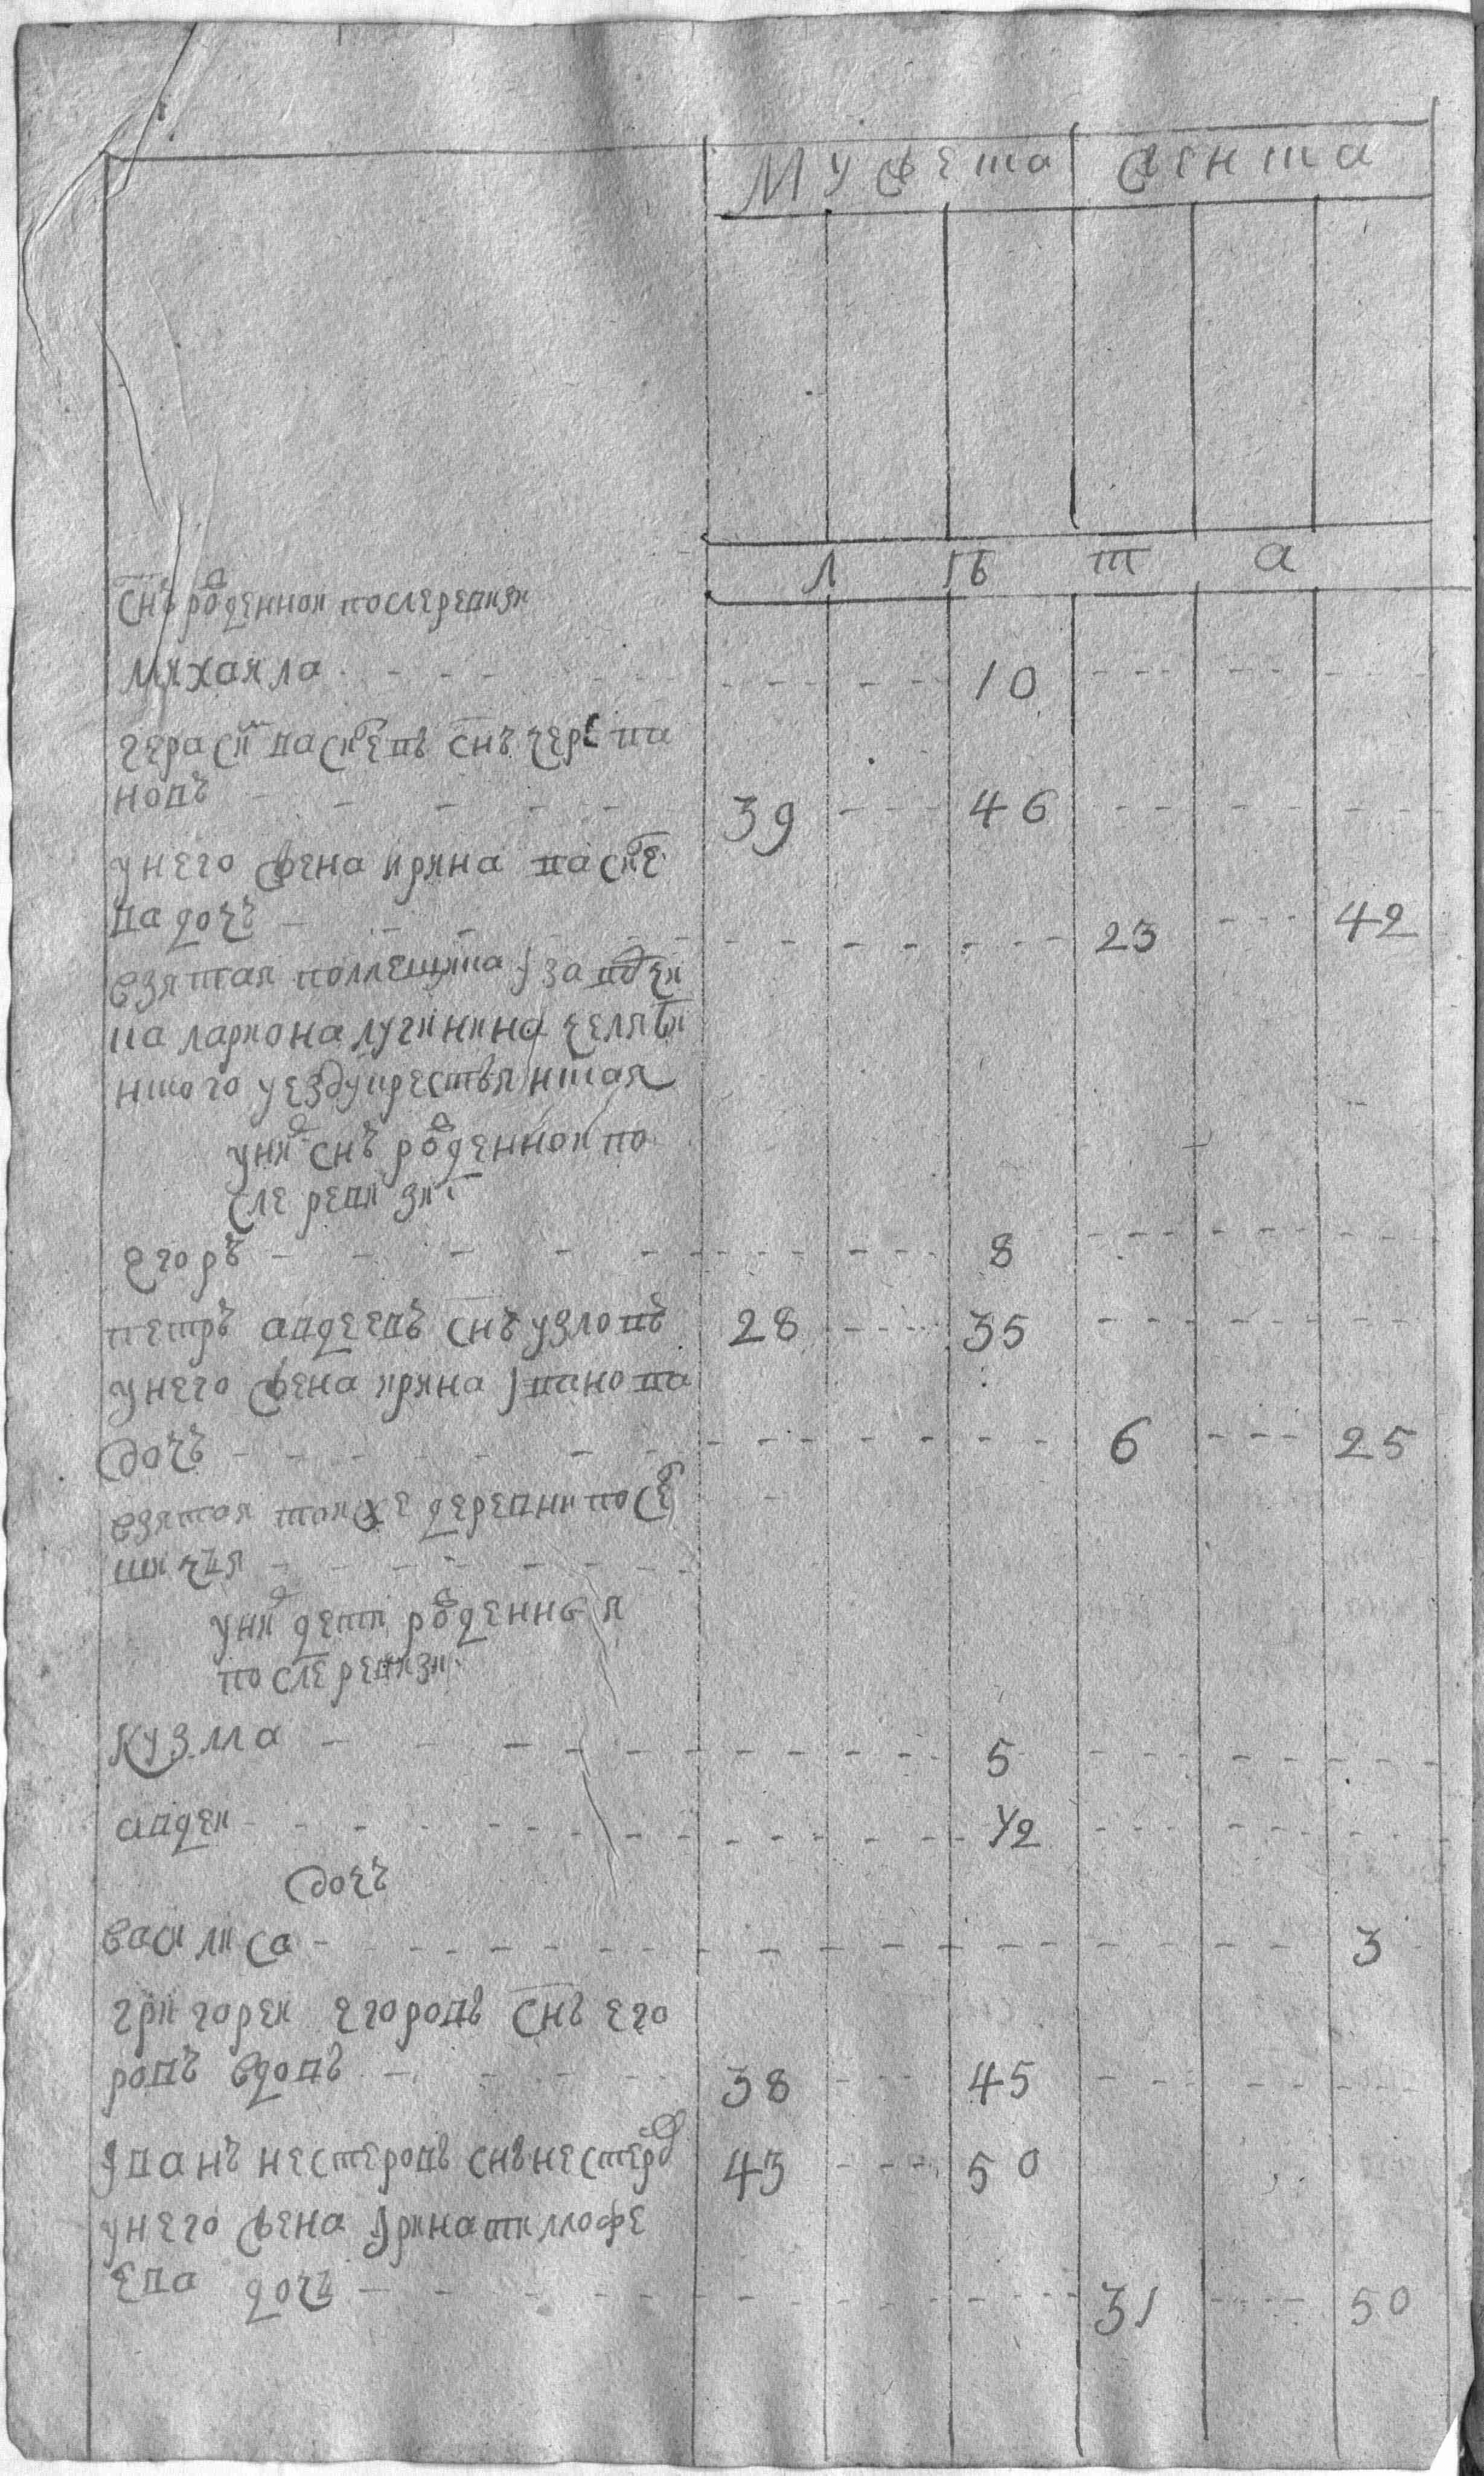 мужеска женска
лѣта
снъ рожденнои послеревизи
михаила 10
герасим васильевъ снъ черепа
новъ 39 46
у него жена ирина василе
ва дочь 23 42
взятая помещика
ла лариона лугинина челяби
нского уезду крестьянская
у них снъ рожденнои по
сле ревизи
егоръ 8
петръ авдеевъ снъ узловъ 28 35
у него жена ирина иванова
дочь 6 25
взятая тоиже деревни
у них дети рожденныя
после ревизи
кузма 5
авдеи 1/2
дочь
василиса 3
григореи егоровъ снъ его
ровъ вдовъ 38 45
иванъ нестеровъ снъ нестеров 43 50
у него жена ирина тимофе
ева дочь 31 50